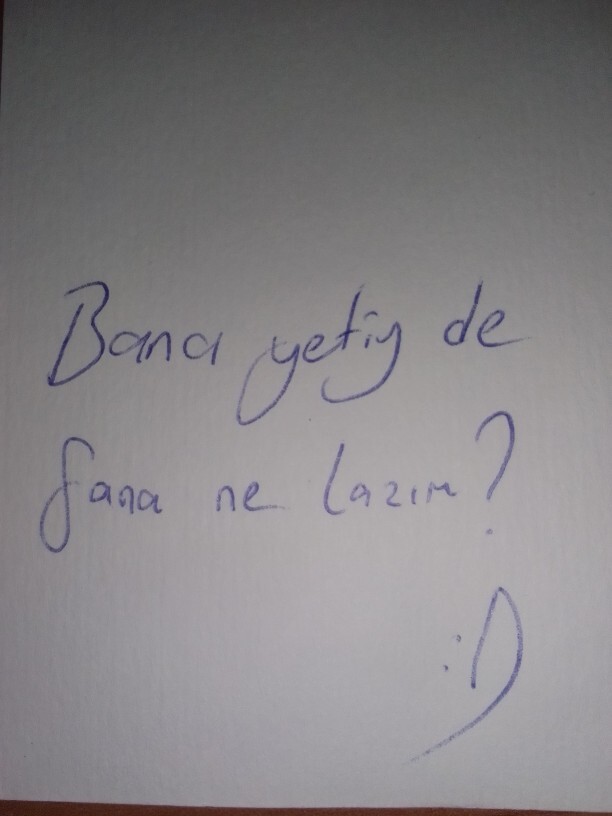 Bana yetiy de
Sana ne lazım?
:D